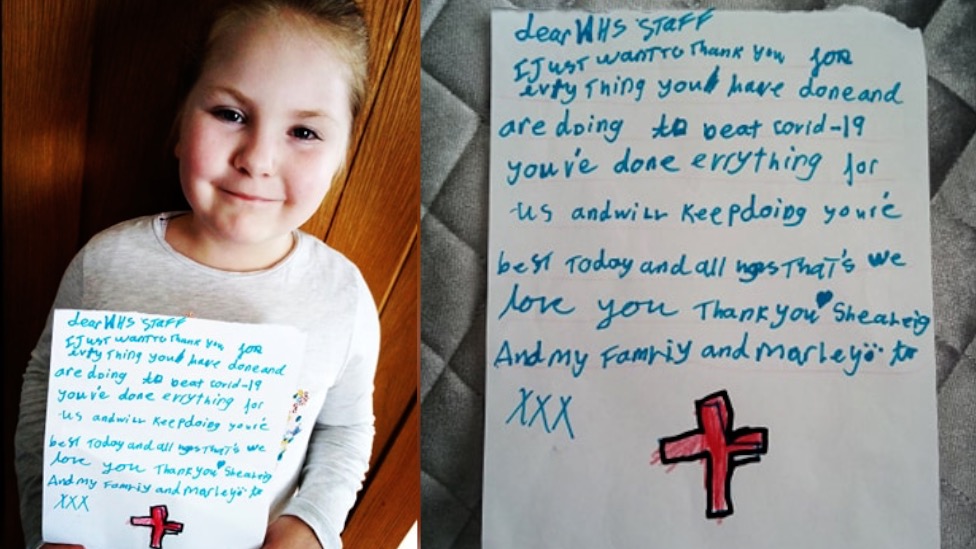 dear NHS STAFF
I Just want to Thank you for
evry Thing you have done and
are doing to beat covid-19
you've done errything for
us and will Keep doing you're
best Today and all ways That's we
love you Thank you Shealeig
And my Famriy and Marley
XXX
dear NHS STAFF
I Just want to Thank you for
evry Thing you have done and
are doing to beat covid-19
you've done errything for
us and will Keep doing you're
best Today and all ways That's we
love you Thank you Shealeig
And my Famriy and Marley
XXX